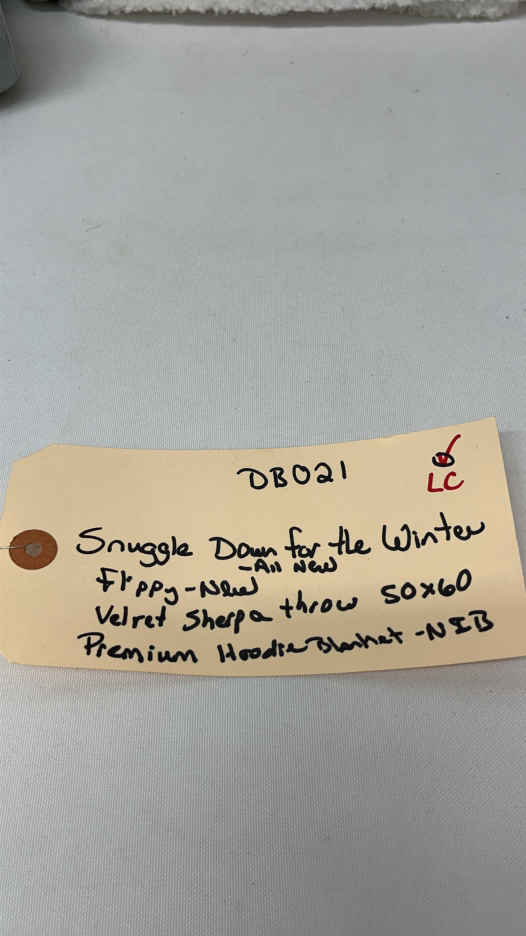 DB021
LC
Snuggle Down for the Winter
-All New
Flippy-New
Velvet Sherpa throw 50x60
Premium Hoodie Blanket -NIB